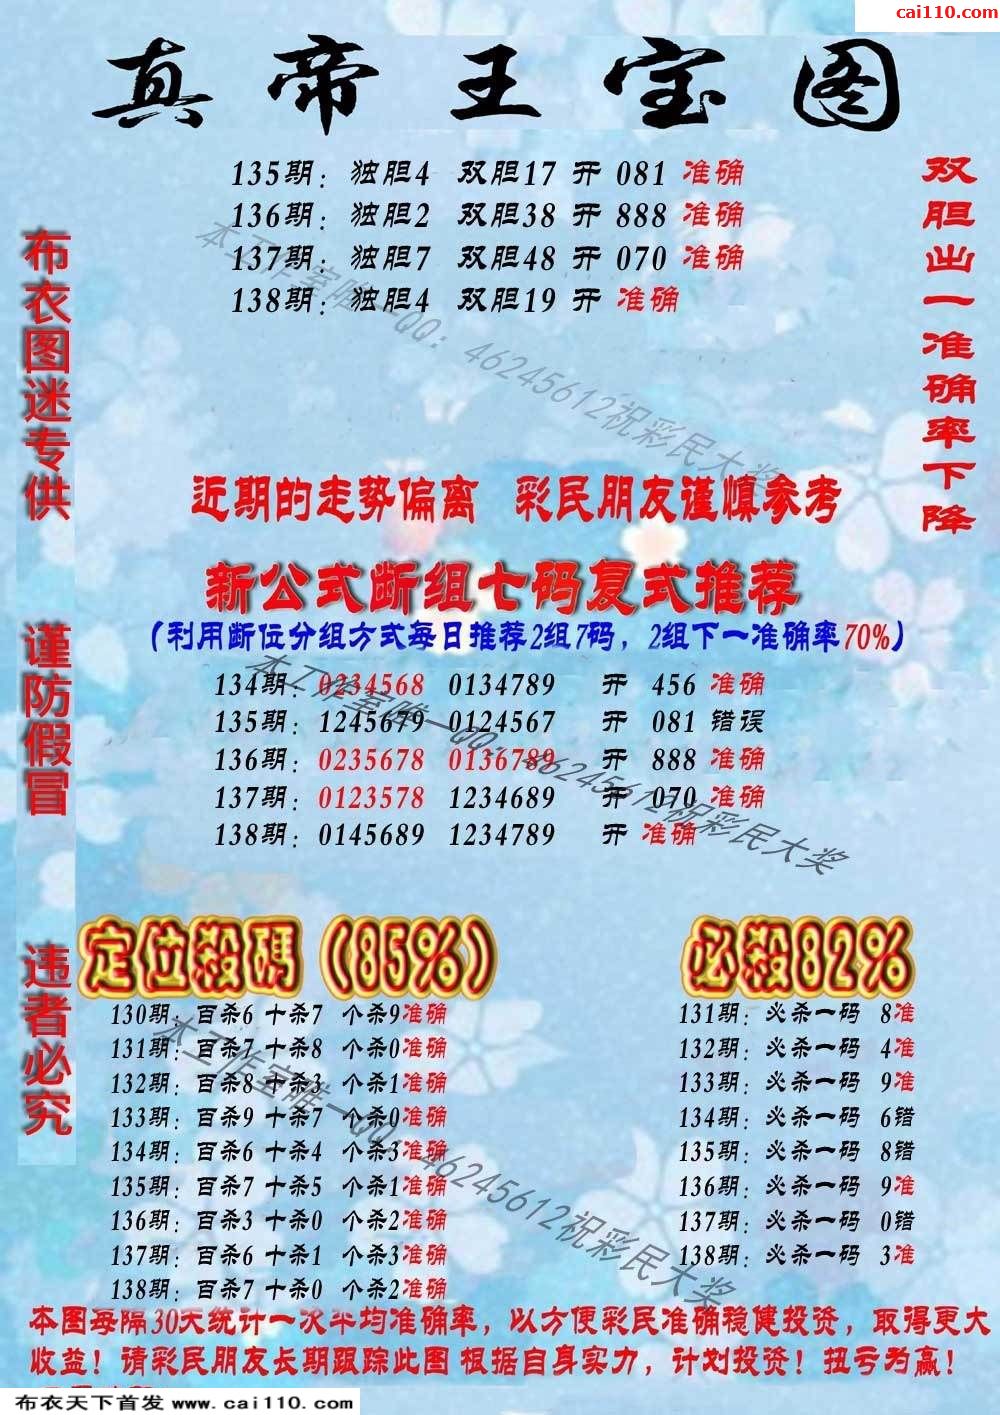 cai110.com
真帝王宝图
135期：独胆4 双胆17 开 081 准确
136期：独胆2 双胆38 开 888 准确
137期：独胆7 双胆48 开 070 准确
138期：独胆4 双胆19 开 准确
双胆出一准确率下降
布衣图迷专供
谨防假冒
违者必究
本工作室唯一QQ：46245612祝彩民大奖
近期的走势偏离 彩民朋友谨慎参考
新公式断组七码复式推荐
（利用断位分组方式每日推荐2组7码，2组下一准确率70%）
134期：0234568 0134789 开 456 准确
135期：1245679 0124567 开 081 错误
136期：0235678 0136789 开 888 准确
137期：0123578 1234689 开 070 准确
138期：0145689 1234789 开 准确
本工作室唯一QQ：46245612祝彩民大奖
定位殺碼（85%）
130期：百杀6 十杀7 个杀9准确
131期：百杀7 十杀8 个杀0准确
132期：百杀8 十杀3 个杀1准确
133期：百杀9 十杀7 个杀0准确
134期：百杀6 十杀4 个杀3准确
135期：百杀7 十杀5 个杀1准确
136期：百杀3 十杀0 个杀2准确
137期：百杀6 十杀1 个杀3准确
138期：百杀7 十杀0 个杀2准确
必殺82%
131期：必杀一码 8准
132期：必杀一码 4准
133期：必杀一码 9准
134期：必杀一码 6错
135期：必杀一码 8错
136期：必杀一码 9准
137期：必杀一码 0错
138期：必杀一码 3准
本工作室唯一QQ：46245612祝彩民大奖
本图每隔30天统计一次平均准确率，以方便彩民准确稳健投资，取得更大
收益！请彩民朋友长期跟踪此图 根据自身实力，计划投资！扭亏为赢！
布衣天下首发 www.cai110.com